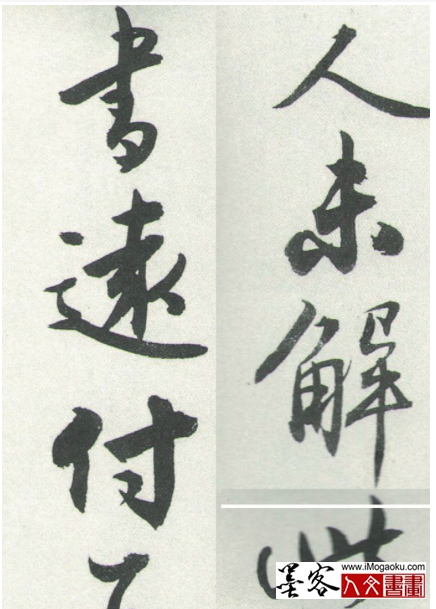 人未解
書遠付
www.iMogaoku.com
墨客 人文書畫